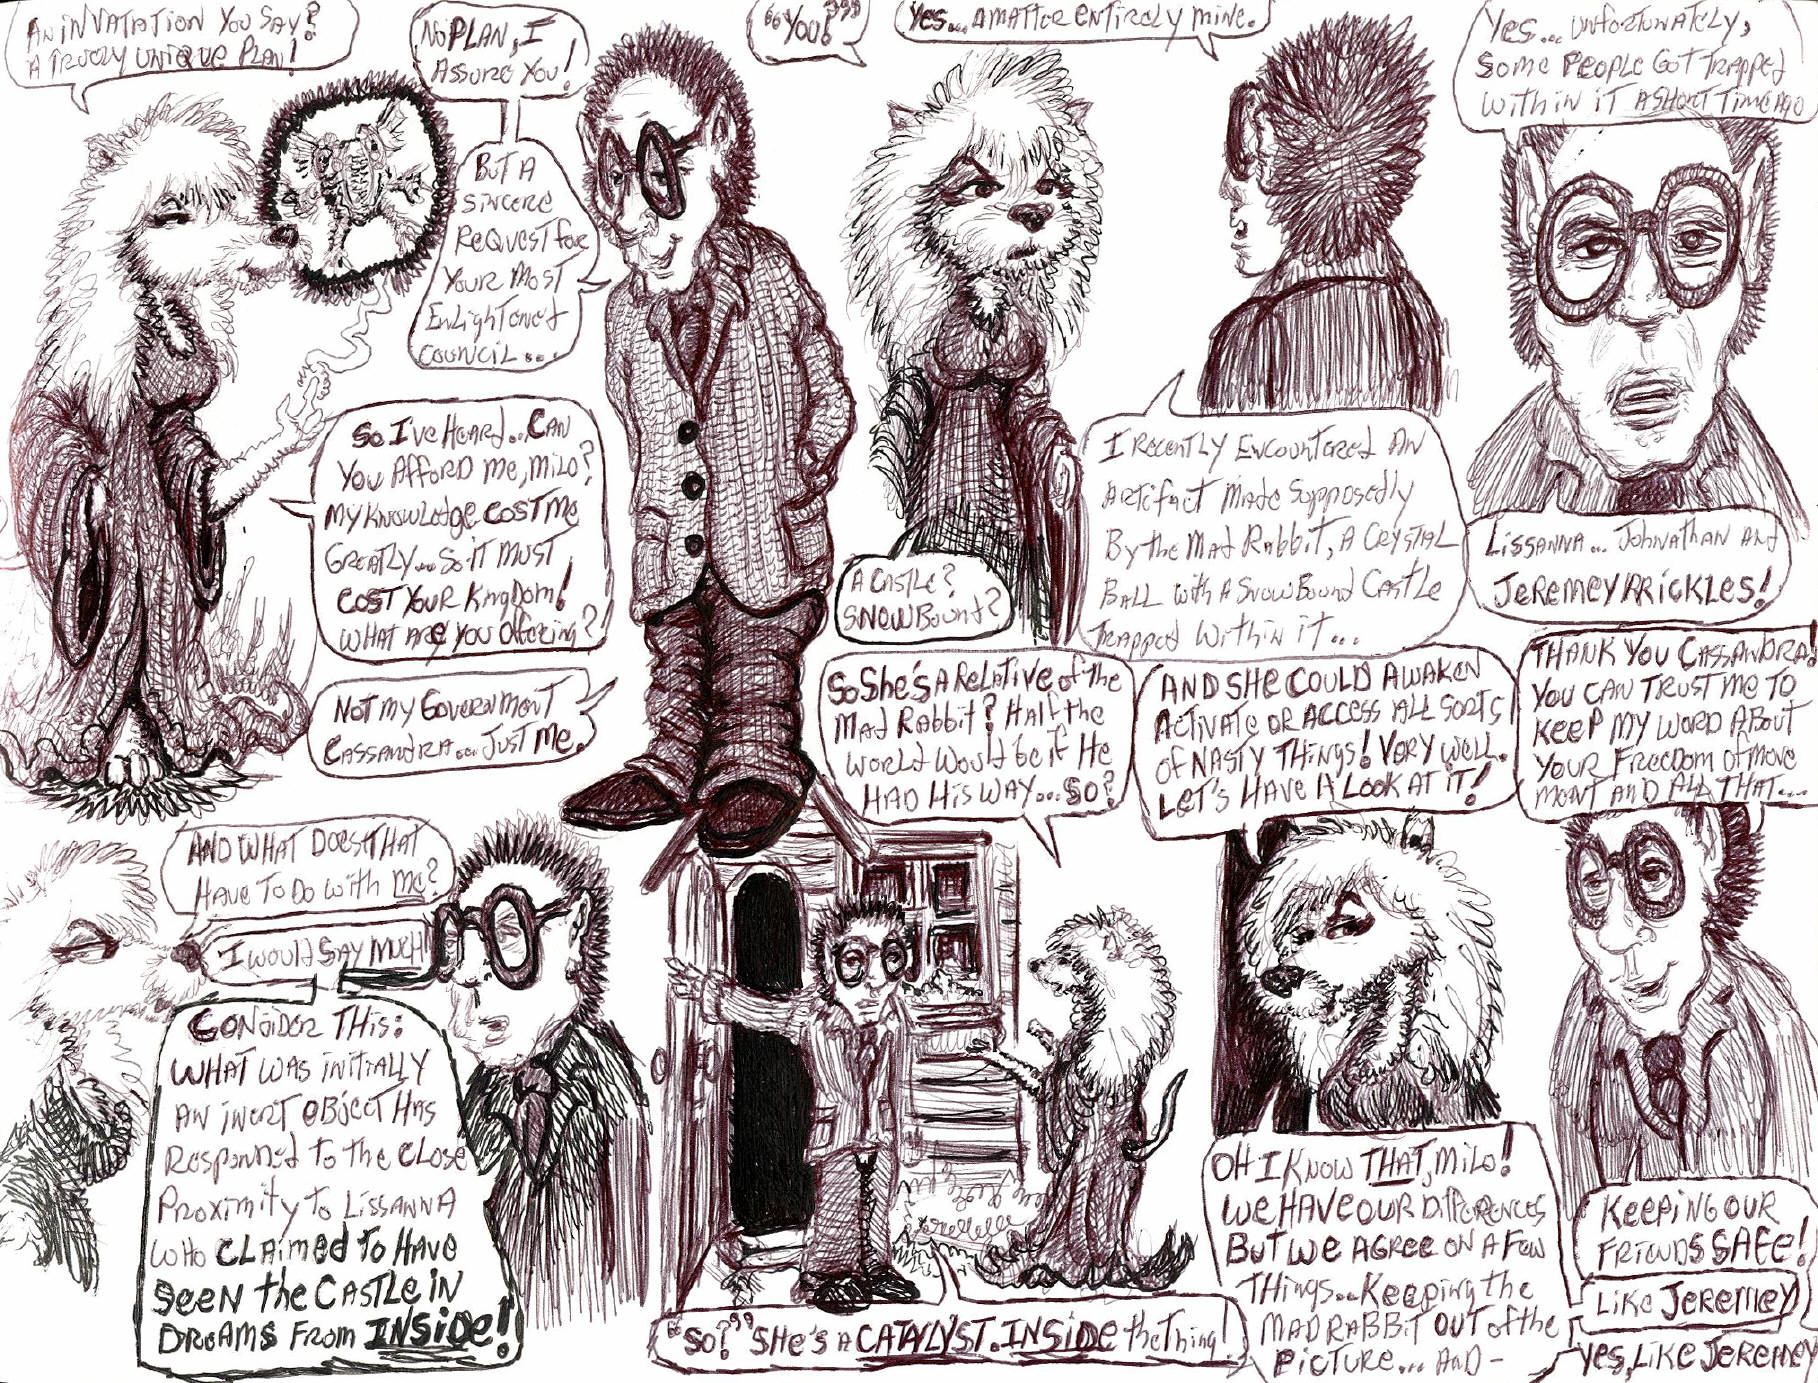 An invatation you say?
A truely unique plan!
No plan, I
assure you!
But a
sincere
request for
your most
enlightened
council...
So I've heard... Can
you afford me, Milo?
My knowledge cost me
greatly... so it must
cost your kingdom!
What are you offering?
Not my government
Cassandra... just me.
"You?"
Yes... a matter entirely mine.
I recently encountered an
artifact made supposedly
by the Mad Rabbit, a crystal
ball with a snowbound castle
trapped within it...
A castle?
Snowbound?
Yes... unfortunately,
some people got trapped
within it a short time ago
Lissanna... Johnathan and
Jeremey Prickles!
And what does that
have to do with me?
I would say much!
Consider this:
What was initially
an inert object has
responned to the close
proximity to Lissanna
who claimed to have
seen the castle in
dreams from inside!
So she's a relative of the
Mad Rabbit? Half the
world would be if he
had his way... So?
"So?" She's a catalyst. Inside the thing!
And she could awaken
activate or access all sorts
of nasty things! Very well.
Let's have a look at it!
Thank you Cassandra!
You can trust me to
keep my word about
your freedom of move
ment and all that...
Oh I know that, Milo!
We have our differences
but we agree on a few
things... keeping the
Mad Rabbit out of the
picture... and -
Keeping our
friends safe!
Like Jeremey
Yes, like Jeremey